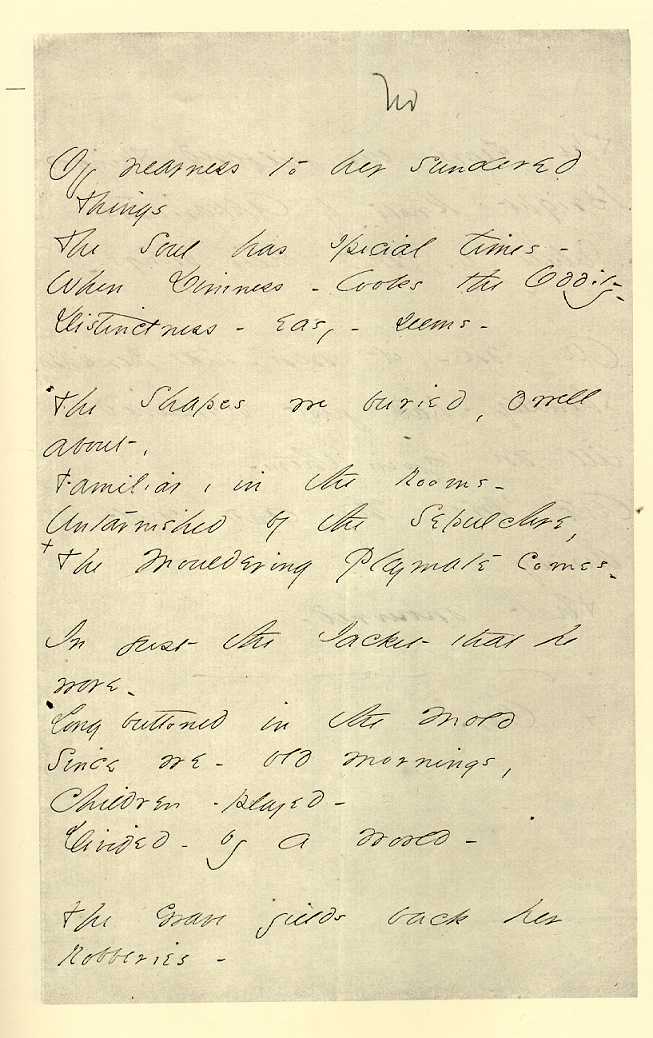 No
Of nearness to her sundered
Things
The Soul has special times -
When Dimness - looks the Oddity -
Distinctness - easy, - seems -
The Shapes we buried, dwell
about -,
Familiar, in the Rooms -
Untarnished by the Sepulchre,
+ The Mouldering Playmate comes -
In just the Jacket that he
wore -
Long buttoned in the Mold
Since we - old mornings,
Children - played -
Divided - by a world -
The Grave yields back her
Robberies -